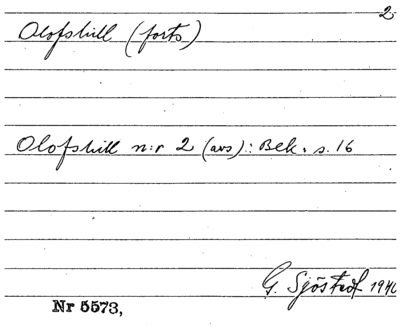 2
Olofshill (forts)
Olofshill n:r 2 (avs): Bek. s. 16
G. Sjöstedt
Nr 5573,